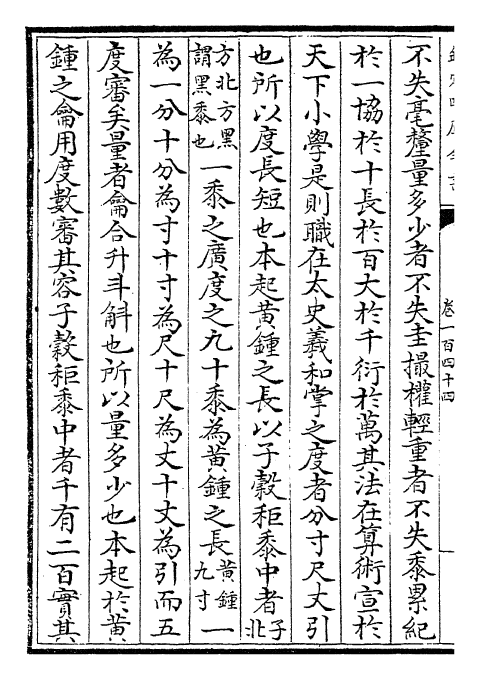 不失毫釐量多少者不失圭撮權輕重者不失黍累紀
於一協於十長於百大於千衍於萬其法在算術宣於
天下小學是則職在太史羲和掌之度者分寸尺丈引
也所以度長短也本起黄鍾之長以子穀秬黍中者子北
方北方黑謂黑黍也一黍之廣度之九十黍為黄鍾之長黄鍾九寸一
為一分十分為寸十寸為尺十尺為丈十丈為引而五
度審矣量者龠合升斗斛也所以量多少也本起於黄
鍾之龠用度數審其容子穀秬黍中者千有二百實其
卷一百四十四